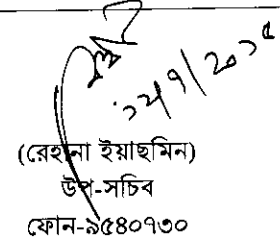 ১২/৭/২০১৫
(রেহানা ইয়াছমিন)
উপ-সচিব
ফোন-৯৫৪০৭৩০